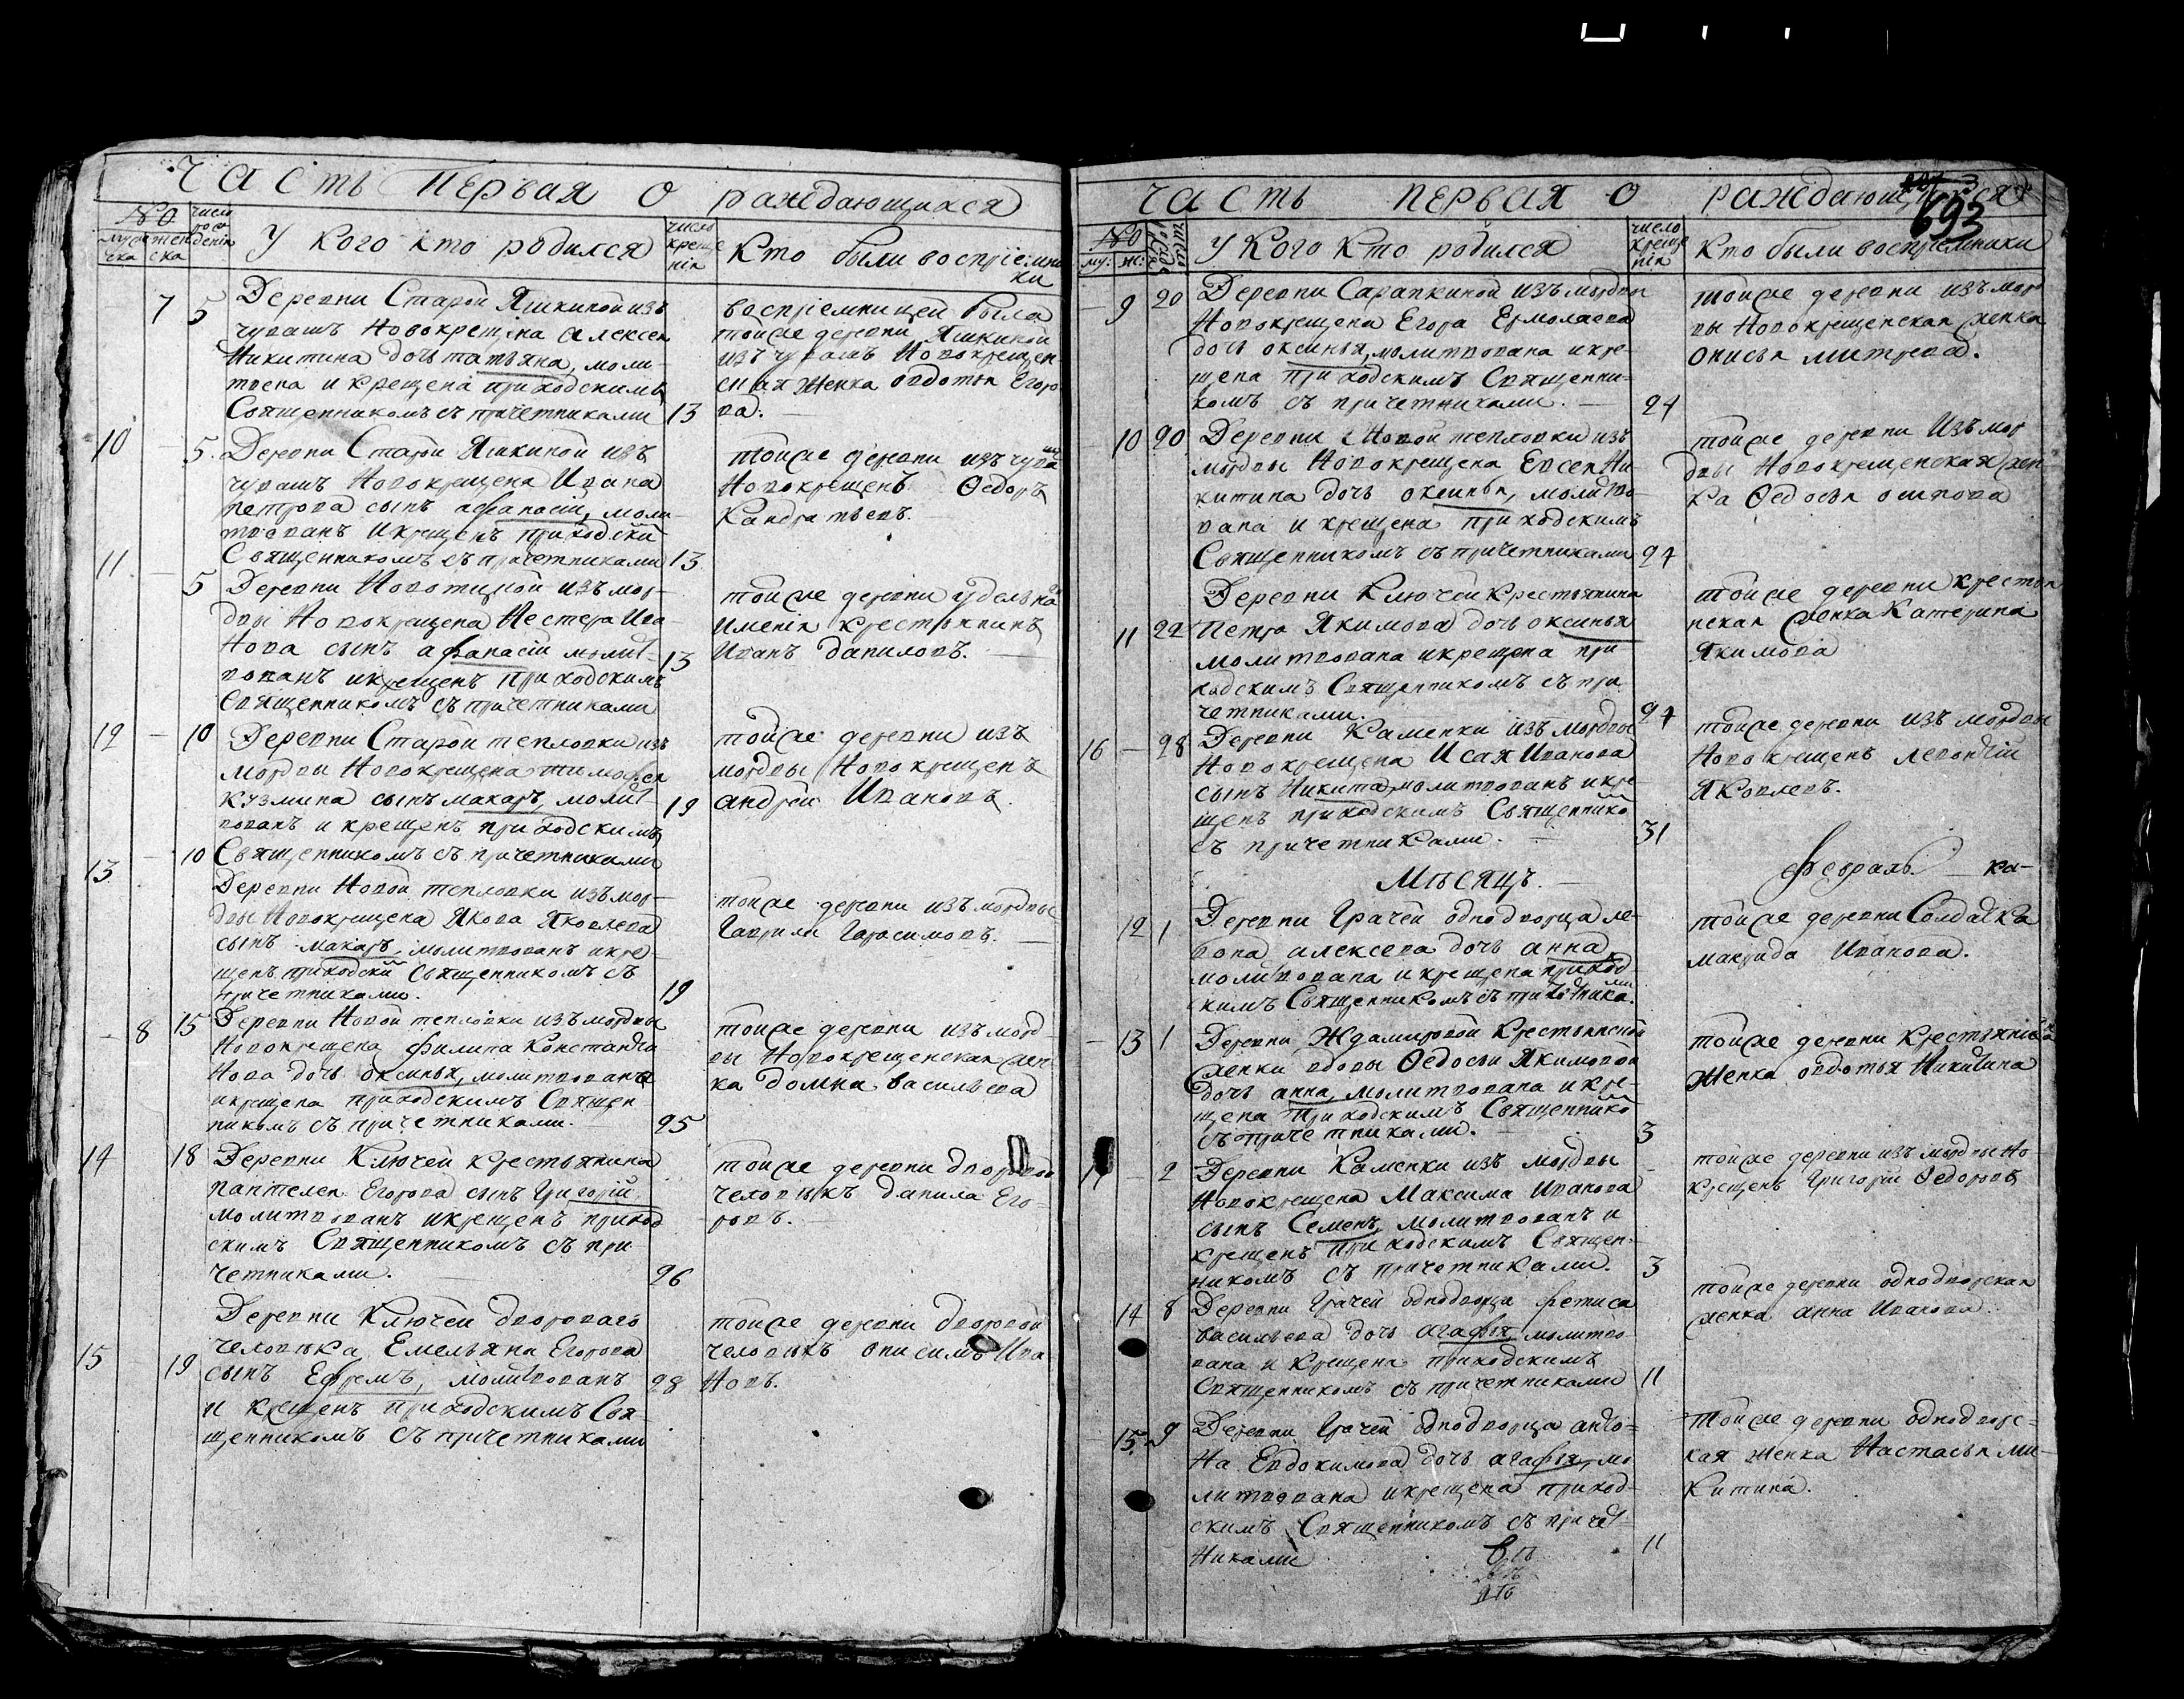 Часть первая о раждающихся
№
муже
ска
жен
ска
число
рож
денія
У кого кто родился
число
креще
нія
Кто были воспріемни
ки
7 5 Деревни Старой Яшкиной изъ
чувашъ Новокрещена Алексея
Никитина дочь татьяна, моли
твена и крещена приходскимъ
Священникомъ съ причетниками 13
воспріемницей была
тойже деревни Яшкиной
изъ чувашъ Новокрещен
ская женка овдотья Егоро
ва.
10 5. Деревни Старой Яшкиной изъ
чувашъ Новокрещена Ивана
петрова сынъ афанасій, моли
твованъ и крещенъ приходски
Священникомъ съ причетниками 13
тойже деревни изъ чува
Новокрещенъ Ѳедоръ
Кандратьевъ.
11 5 Деревни
изъ мор-
двы Новокрещена Нестера Ива
Нова сынъ афанасій молит- 13
вованъ и крещенъ приходскимъ
Священникомъ съ причетниками
тойже деревни удельна
Именія крестьянинъ
Иванъ даниловъ.
12 10 Деревни Старой тепловки изъ
мордвы Новокрещена тимофея
кузмина сынъ макаръ, молит- 19
вованъ и крещенъ приходскимъ
Священникомъ съ причетниками
тойже деревни изъ
мордвы Новокрещенъ
андрей Ивановъ.
13 10
Деревни Новой тепловки изъ мор-
двы Новокрещена Якова Яковлева
сынъ макаръ, молитвованъ и кре
щенъ приходски Священникомъ съ
причетниками. 19
тойже деревни изъ мордвы
Гаврила Герасимовъ.
8 15 Деревни Новой тепловки изъ мордвы
Новокрещена филипа Константи
Нова дочь оксинья, молитвована
и крещена приходскимъ Священ
никомъ съ причетниками. 25
тойже деревни изъ морд
вы Новокрещенская жен
ка домна васильева
14 18 Деревни Ключей крестьянина
пантелея Егорова сынъ Григорій
молитвованъ и крещенъ приход
скимъ Священникомъ съ при
четниками. 26
тойже деревни дворовой
человѣкъ данила Его
ровъ.
Деревни Ключей дворовагъ
человѣка Емельяна Егорова
15 19 сынъ Ефремъ, молитвованъ 28
и крещенъ приходскимъ Свя
щенникомъ съ причетниками
тойже деревни дворовой
человѣкъ онисимъ Ива
Новъ.
Часть первая о раждающихся
693
№
му: ж:
У кого кто родился
число
креще
нія
Кто были воспріемники
9 20 Деревни Сарапкиной изъ мордвы
Новокрещена Егора Ермолаева
дочь оксинья, молитвована и кре-
щена приходскимъ Священни-
комъ съ причетниками. 24
тойже деревни изъ мор
вы Новокрещенская женка
онисья митрева.
10 20 Деревни Новой тепловки изъ
мордвы Новокрещена Евсея Ни
китина дочь оксинья, молитво
вана и крещена приходскимъ
Священникомъ съ причетниками 24
тойже деревни Изъ мор
двы Новокрещенская жен
ка Ѳедосья осипова
Деревни Ключей Крестьянина
11 22 Петра Якимова дочь оксинья
молитвована и крещена при
ходскимъ Священникомъ съ при
четниками. 24
тойже деревни крестья
нская женка Катерина
Якимова
16 28 Деревни Каменки изъ мордвы
Новокрещена Исая Иванова
сынъ Никита, молитвованъ и кре
щенъ приходскимъ Священнико
съ причетниками. 31
тойже деревни изъ мордвы
Новокрещенъ леонтій
Яковлевъ.
Мѣсяцъ. Февраль.
12 1 Деревни Грачей однодворца ле-
вона алексева дочь анна
молитвована и крещена приход
кимъ Священникомъ съ причетника
ми
тойже деревни Солдатка
маврида Иванова.
13 1 Деревни Ждамировой Крестьянской
женки вдовы Ѳедосьи Якимовой
дочь анна, молитвована и кре-
щена приходскимъ Священнико
съ причетниками. 3
тойже деревни Крестьянска
женка овдотья Никитина
2 Деревни Каменки изъ мордвы
Новокрещена Максима Иванова
сынъ Семенъ, молитвованъ и
крещенъ приходскимъ Священ-
никомъ съ причетниками. 3
тойже деревни изъ мордвы Но
крещенъ Григорій Ѳедоровъ
14 8 Деревни Грачей однодворца фетиса
васильева дочь агафья молитво
вана и крещена приходскимъ
Священникомъ съ причетниками 11
тойже деревни однодворская
женка анна Иванова.
15. 9 Деревни Грачей однодворца анто-
На Евдокимова дочь агафья, мо
литвована и крещена приход-
скимъ Священникомъ съ причет-
Никами 11
тойже деревни однодворс-
кая женка Настасья ми-
Китина.